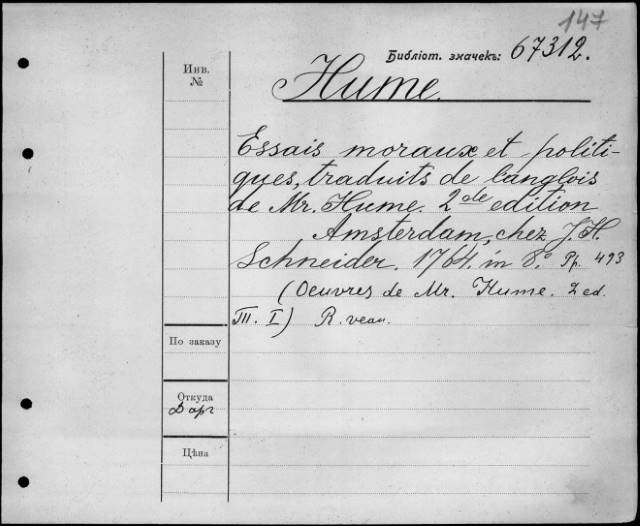 147
Библіот. значекъ: 67312.
Инв.
№
Hume.
Essais moraux et politi-
ques, traduits de langlois
de Mr. Hume. 2de edition
Amsterdam, chez J. H.
Schneider. 1764. in 8.° Pp. 493
(Oeuvres de Mr. Hume. 2 ed.
T. I) R. veau.
По заказу
Откуда
Дарг
Цѣна